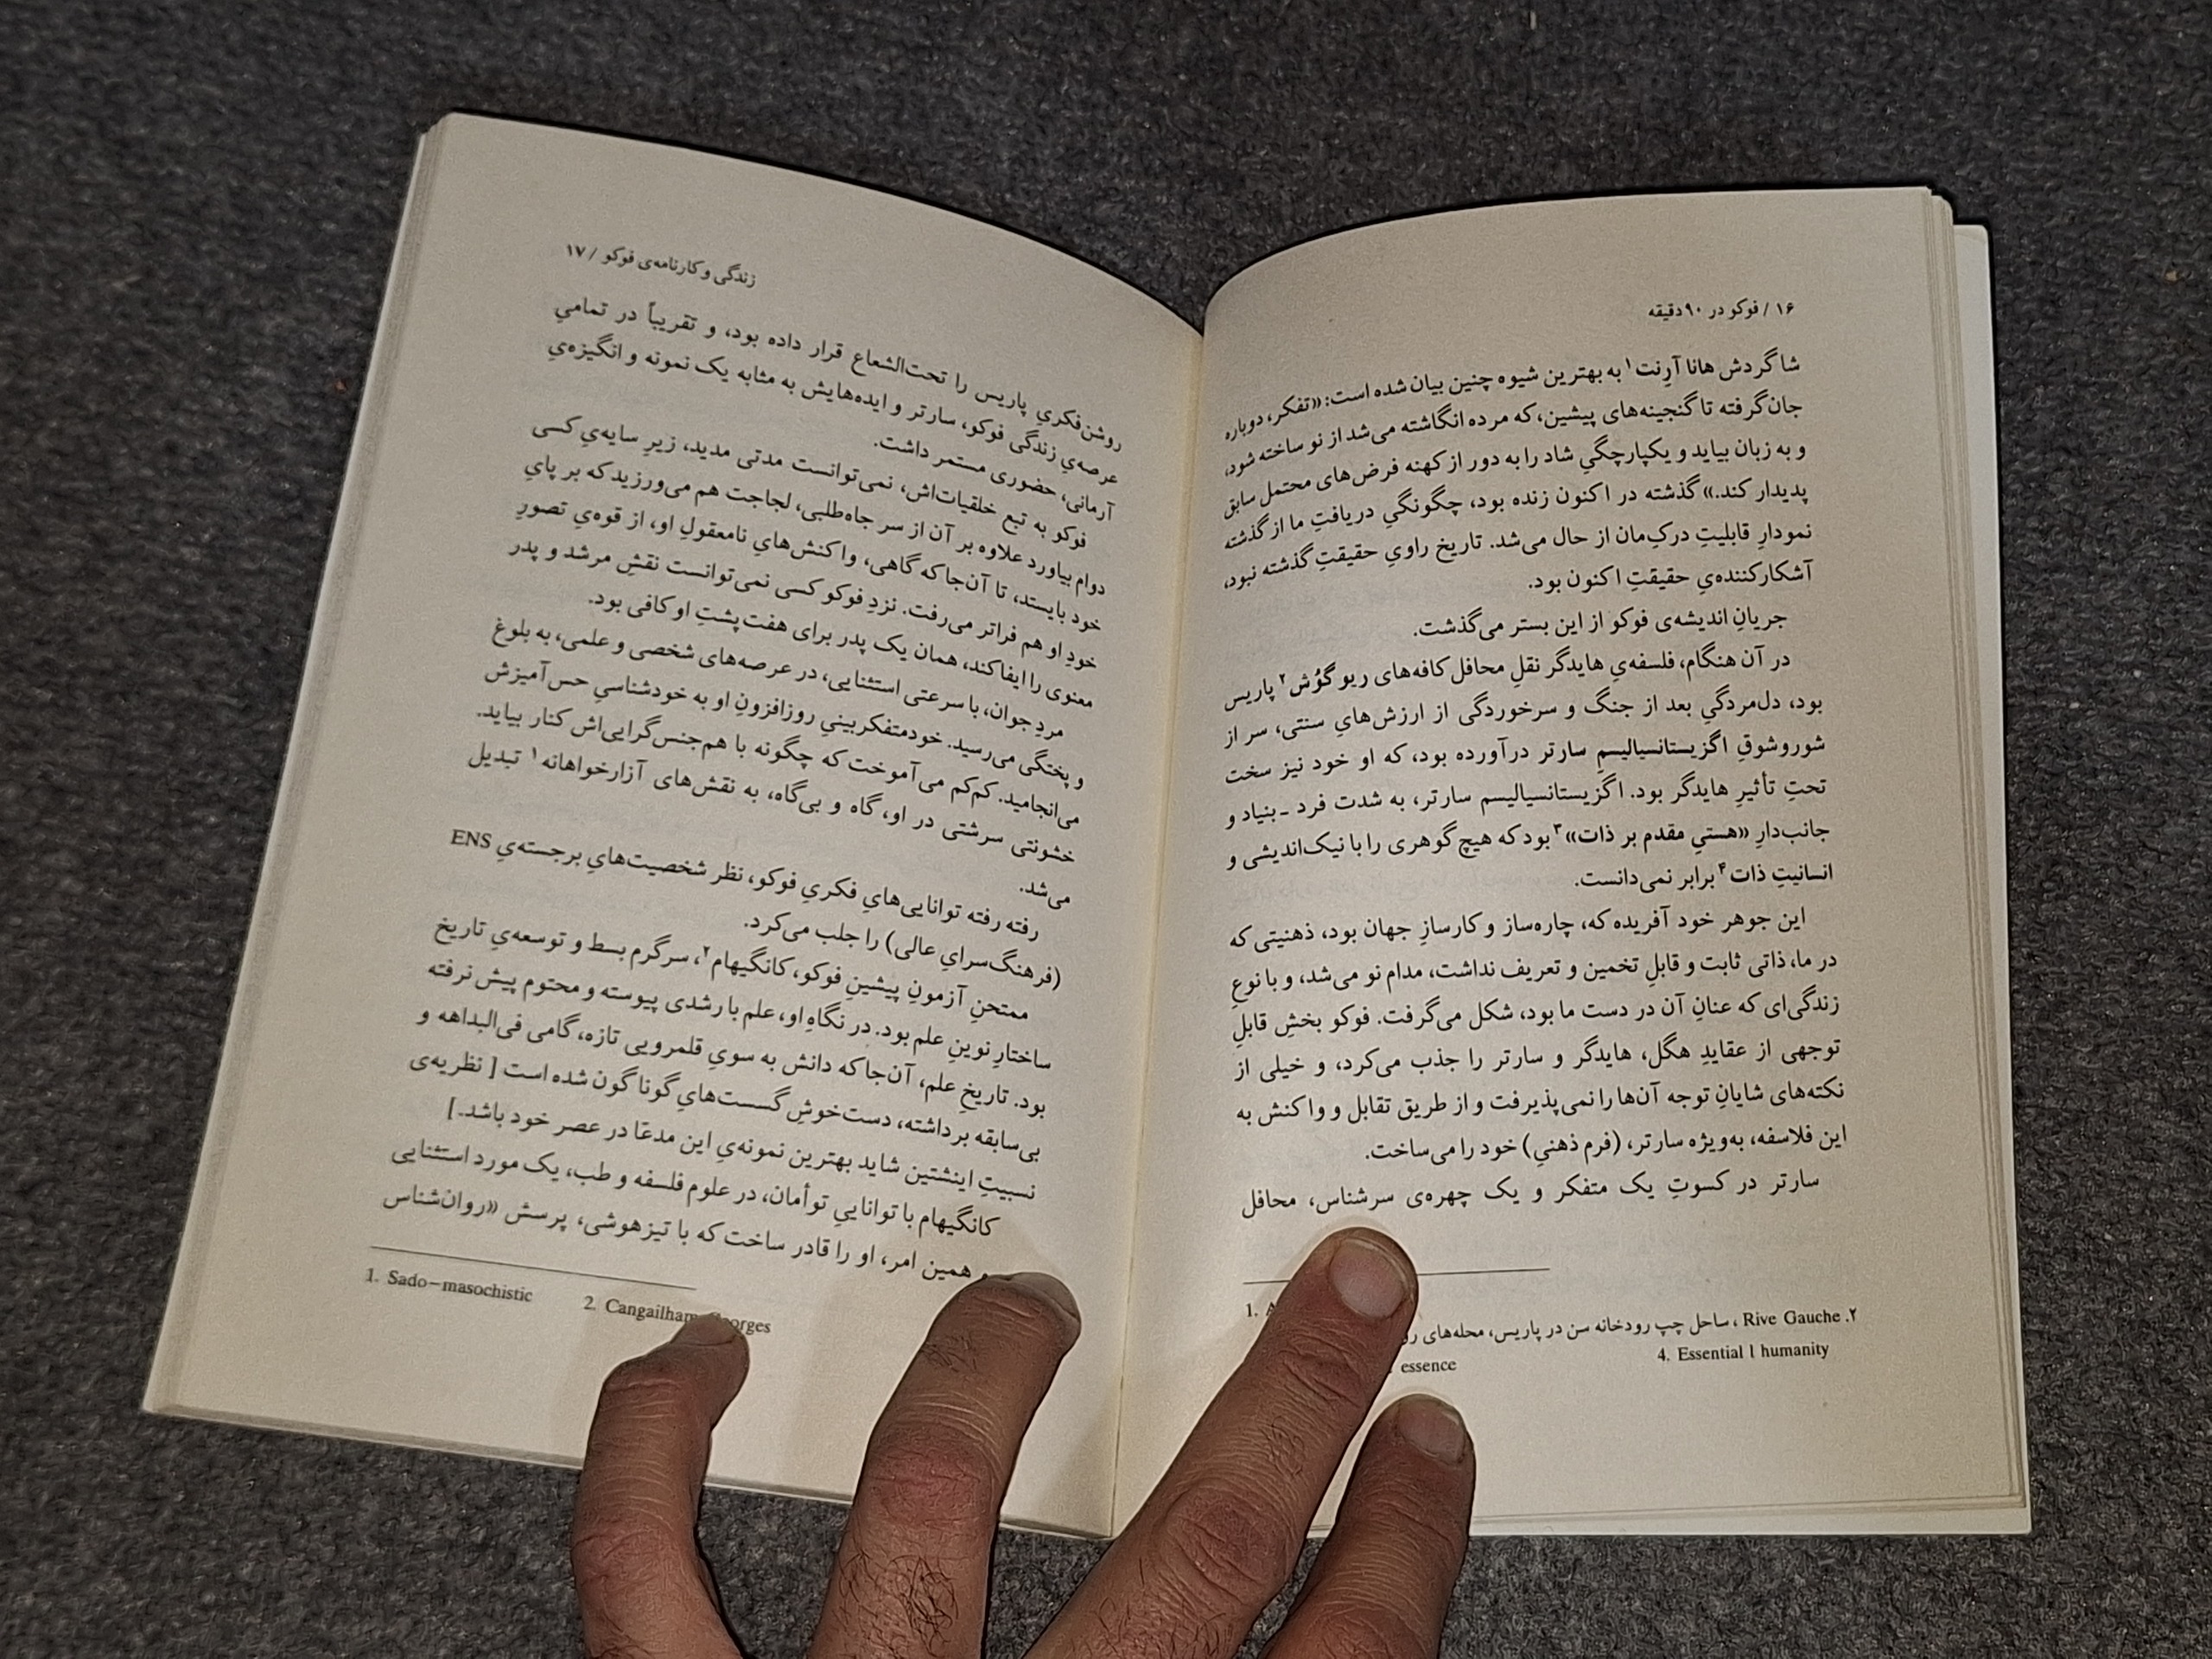 ۱۶ / فوکو در ۹۰ دقیقه
شاگردش هانا آرِنت۱ به بهترین شیوه چنین بیان شده است: «تفکر، دوباره
جان‌گرفته تا گنجینه‌های پیشین، که مرده انگاشته می‌شد از نو ساخته شود،
و به زبان بیاید و یکپارچگیِ شاد را به دور از کهنه فرض‌های محتمل سابق
پدیدار کند.» گذشته در اکنون زنده بود، چگونگیِ دریافتِ ما از گذشته
نمودارِ قابلیتِ درکِ‌مان از حال می‌شد. تاریخ راویِ حقیقتِ گذشته نبود،
آشکارکننده‌یِ حقیقتِ اکنون بود.
جریانِ اندیشه‌ی فوکو از این بستر می‌گذشت.
در آن هنگام، فلسفه‌یِ هایدگر نقلِ محافل کافه‌های ریو گوُش۲ پاریس
بود، دل‌مردگیِ بعد از جنگ و سرخوردگی از ارزش‌هایِ سنتی، سر از
شوروشوقِ اگزیستانسیالیسمِ سارتر درآورده بود، که او خود نیز سخت
تحتِ تأثیرِ هایدگر بود. اگزیستانسیالیسم سارتر، به شدت فرد ـ بنیاد و
جانب‌دارِ «هستیِ مقدم بر ذات»۳ بود که هیچ گوهری را با نیک‌اندیشی و
انسانیتِ ذات۴ برابر نمی‌دانست.
این جوهر خود آفریده که، چاره‌ساز و کارسازِ جهان بود، ذهنیتی که
در ما، ذاتی ثابت و قابلِ تخمین و تعریف نداشت، مدام نو می‌شد، و با نوعِ
زندگی‌ای که عنانِ آن در دست ما بود، شکل می‌گرفت. فوکو بخشِ قابلِ
توجهی از عقایدِ هگل، هایدگر و سارتر را جذب می‌کرد، و خیلی از
نکته‌های شایانِ توجه آن‌ها را نمی‌پذیرفت و از طریق تقابل و واکنش به
این فلاسفه، به‌ویژه سارتر، (فرم ذهنیِ) خود را می‌ساخت.
سارتر در کسوتِ یک متفکر و یک چهره‌ی سرشناس، محافل
1.
۲. Rive Gauche، ساحل چپ رودخانه سن در پاریس، محله‌های
essence 4. Essential l humanity
زندگی و کارنامه‌ی فوکو / ۱۷
روشن‌فکریِ پاریس را تحت‌الشعاع قرار داده بود، و تقریباً در تمامیِ
عرصه‌یِ زندگی فوکو، سارتر و ایده‌هایش به مثابه یک نمونه و انگیزه‌یِ
آرمانی، حضوری مستمر داشت.
فوکو به تبع خلقیات‌اش، نمی‌توانست مدتی مدید، زیرِ سایه‌یِ کسی
دوام بیاورد علاوه بر آن از سر جاه‌طلبی، لجاجت هم می‌ورزید که بر پایِ
خود بایستد، تا آن‌جا که گاهی، واکنش‌هایِ نامعقولِ او، از قوه‌یِ تصورِ
خودِ او هم فراتر می‌رفت. نزدِ فوکو کسی نمی‌توانست نقشِ مرشد و پدر
معنوی را ایفا کند، همان یک پدر برای هفت پشتِ او کافی بود.
مردِ جوان، با سرعتی استثنایی، در عرصه‌های شخصی و علمی، به بلوغ
و پختگی می‌رسید. خودمتفکربینیِ روزافزونِ او به خودشناسیِ حس‌آمیزش
می‌انجامید. کم‌کم می‌آموخت که چگونه با هم‌جنس‌گرایی‌اش کنار بیاید.
خشونتی سرشتی در او، گاه و بی‌گاه، به نقش‌های آزارخواهانه۱ تبدیل
می‌شد.
رفته رفته توانایی‌هایِ فکریِ فوکو، نظر شخصیت‌هایِ برجسته‌یِ ENS
(فرهنگ‌سرایِ عالی) را جلب می‌کرد.
ممتحنِ آزمونِ پیشینِ فوکو، کانگیهام۲، سرگرم بسط و توسعه‌یِ تاریخ
ساختارِ نوینِ علم بود. در نگاهِ او، علم با رشدی پیوسته و محتوم پیش نرفته
بود. تاریخِ علم، آن‌جا که دانش به سویِ قلمرویی تازه، گامی فی‌البداهه و
بی‌سابقه برداشته، دست‌خوشِ گسست‌هایِ گوناگون شده است [ نظریه‌ی
نسبیتِ اینشتین شاید بهترین نمونه‌یِ این مدعّا در عصر خود باشد.]
کانگیهام با تواناییِ توأمان، در علوم فلسفه و طب، یک مورد استثنایی
همین امر، او را قادر ساخت که با تیزهوشی، پرسش «روان‌شناس
1. Sado–masochistic 2. Cangailham